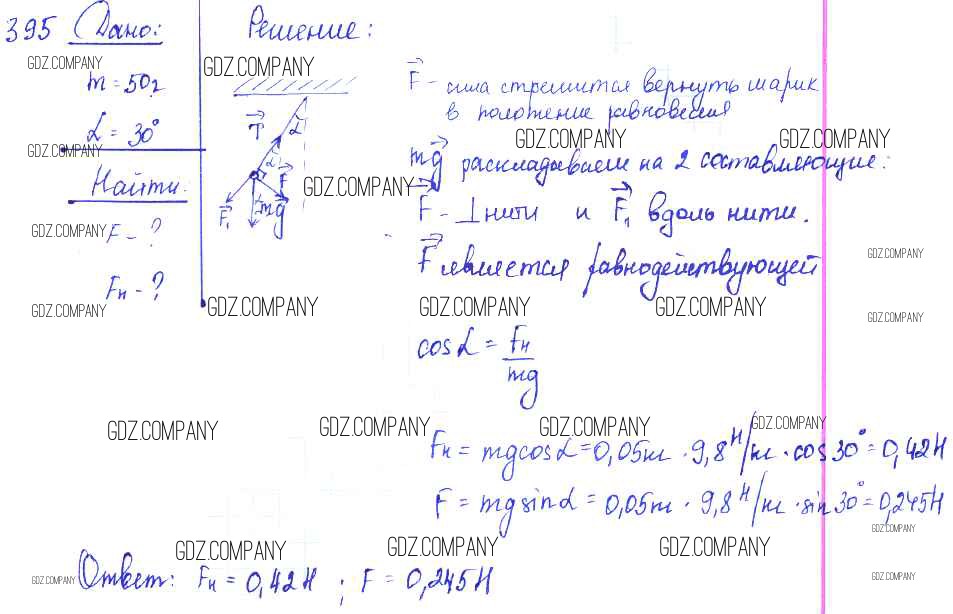 395 Дано: Решение:
GDZ.COMPANY GDZ.COMPANY
m = 50г
α = 30°
GDZ.COMPANY
Найти:
GDZ.COMPANY F - ?
Fн - ?
GDZ.COMPANY GDZ.COMPANY
T α
α F
F₁ mg
GDZ.COMPANY
F - сила стремится вернуть шарик
в положение равновесия
GDZ.COMPANY GDZ.COMPANY
mg раскладываем на 2 составляющие:
F - ⊥ нити и F₁ вдоль нити.
F является равнодействующей
GDZ.COMPANY
GDZ.COMPANY GDZ.COMPANY GDZ.COMPANY
cos α = Fн
mg
GDZ.COMPANY GDZ.COMPANY GDZ.COMPANY GDZ.COMPANY
Fн = mg cos α = 0,05кг · 9,8 Н/кг · cos 30° = 0,42Н
F = mg sin α = 0,05кг · 9,8 Н/кг · sin 30° = 0,245Н
GDZ.COMPANY
GDZ.COMPANY GDZ.COMPANY GDZ.COMPANY
GDZ.COMPANY Ответ: Fн = 0,42Н ; F = 0,245Н
GDZ.COMPANY